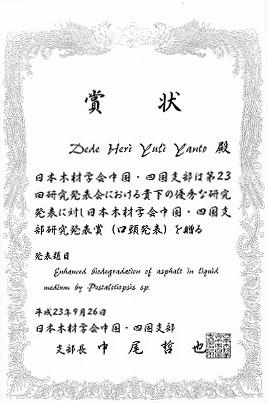 賞状
Dede Heri Yuli Yanto 殿
日本木材学会中国・四国支部は第23
回研究発表会における貴下の優秀な研究
発表に対し日本木材学会中国・四国支
部研究発表賞（口頭発表）を贈る
発表題目
Enhanced biodegradation of asphalt in liquid
medium by Pestalotiopsis sp.
平成23年9月26日
日本木材学会中国・四国支部
支部長 中尾哲也